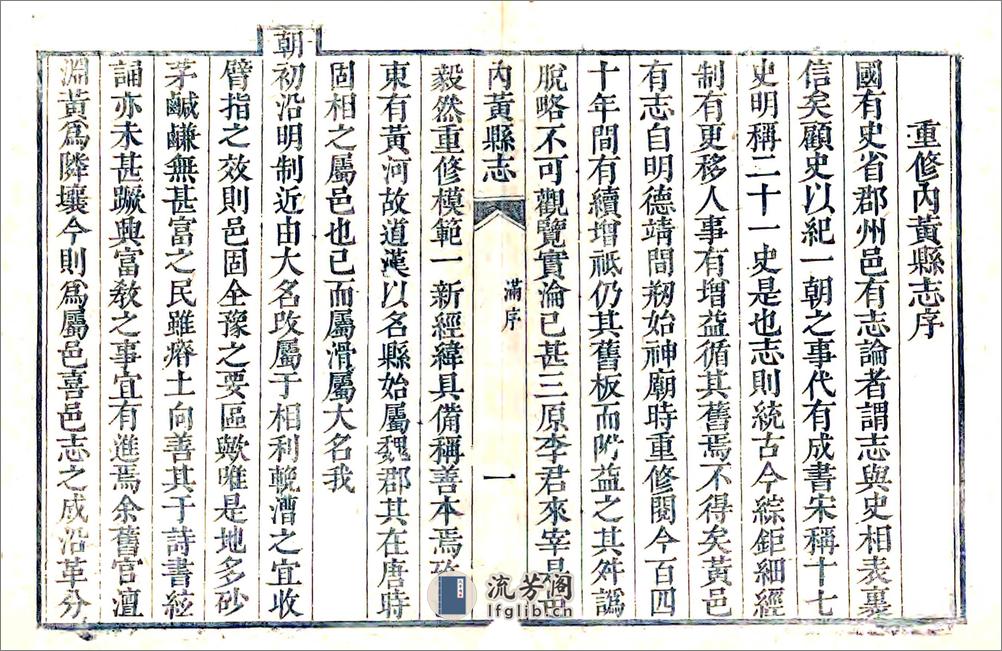 重修內黃縣志序
國有史省郡州邑有志論者謂志與史相表裏
信矣顧史以紀一朝之事代有成書宋稱十七
史明稱二十一史是也志則統古今綜鉅細經
制有更移人事有增益循其舊焉不得矣黃邑
有志自明德靖間剏始神廟時重修閱今百四
十年間有續增祇仍其舊板而附益之其舛譌
脫略不可觀覽實淪已甚三原李君來宰是邑
內黃縣志
滿序
一
毅然重修模範一新經緯具備稱善本焉
東有黃河故道漢以名縣始屬魏郡其在唐時
固相之屬邑也已而屬滑屬大名我
朝初沿明制近由大名改屬于相利輓漕之宜收
臂指之效則邑固全豫之要區歟唯是地多砂
茅鹹鹻無甚富之民雖瘠土向善其于詩書絃
誦亦未甚蹶興富敎之事宜有進焉余舊官澶
淵黃爲隣壤今則爲屬邑喜邑志之成沿革分
流芳阁
lfglib.cn